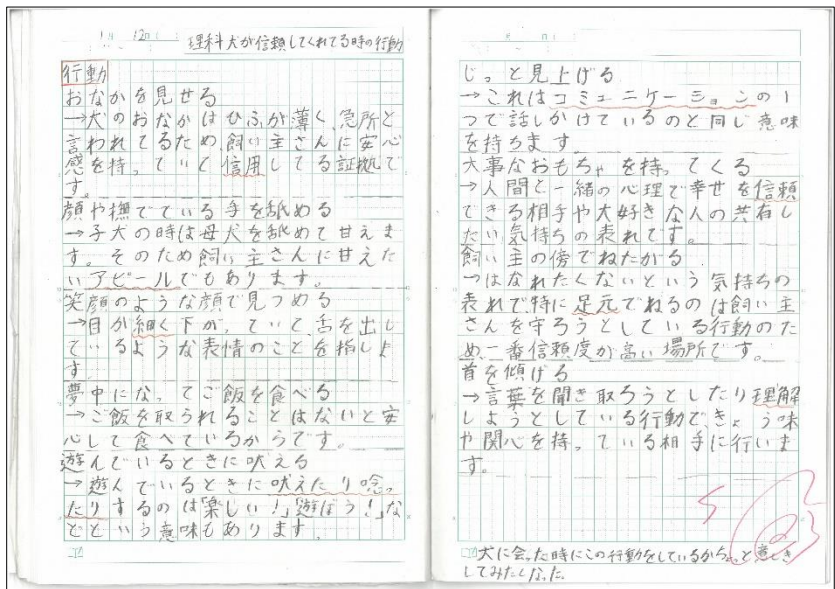 1月 12日 理科 犬が信頼してくれてる時の行動
行動
おなかを見せる
→犬のおなかはひふが薄く、急所と
言われてるため、飼い主さんに安心
感を持っていて信用してる証拠で
す。
顔や撫でている手を舐める
→子犬の時は母犬を舐めて甘えま
す。そのため飼い主さんに甘えた
いアピールでもあります。
笑顔のような顔で見つめる
→目が細く下がっていて、舌を出し
ているような表情のことを指しま
す。
夢中になってご飯を食べる
→ご飯を取られることはないと安
心して食べているからです。
遊んでいるときに吠える
→遊んでいるときに吠えたり唸っ
たりするのは「楽しい!」「遊ぼう!」な
どという意味もあります。
じっと見上げる
→これはコミュニケーションの1
つで話しかけているのと同じ意味
を持ちます。
大事なおもちゃを持ってくる
→人間と一緒の心理で幸せを信頼
できる相手や大好きな人の共有し
たい気持ちの表れです。
飼い主の傍でねたがる
→はなれたくないという気持ちの
表れで、特に足元でねるのは飼い主
さんを守ろうとしている行動のた
め、一番信頼度が高い場所です。
首を傾げる
→言葉を聞き取ろうとしたり理解
しようとしている行動で、きょう味
や関心を持っている相手に行いま
す。
犬に会った時にこの行動をしているかちょっと意しき
してみたくなった。